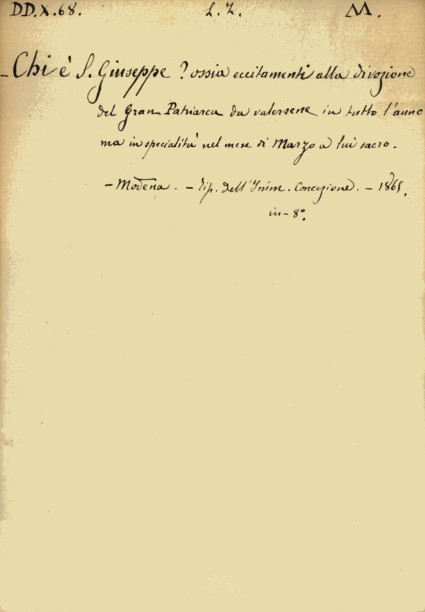 DD.X.68. L.Z. M.
- Chi è S. Giuseppe? ossia eccitamenti alla divozione
del Gran Patriarca da valersene in tutto l'anno
ma in specialità nel mese di Marzo a lui sacro.
- Modena. - Tip. dell'Imm. Concezione. - 1865.
in-8°.